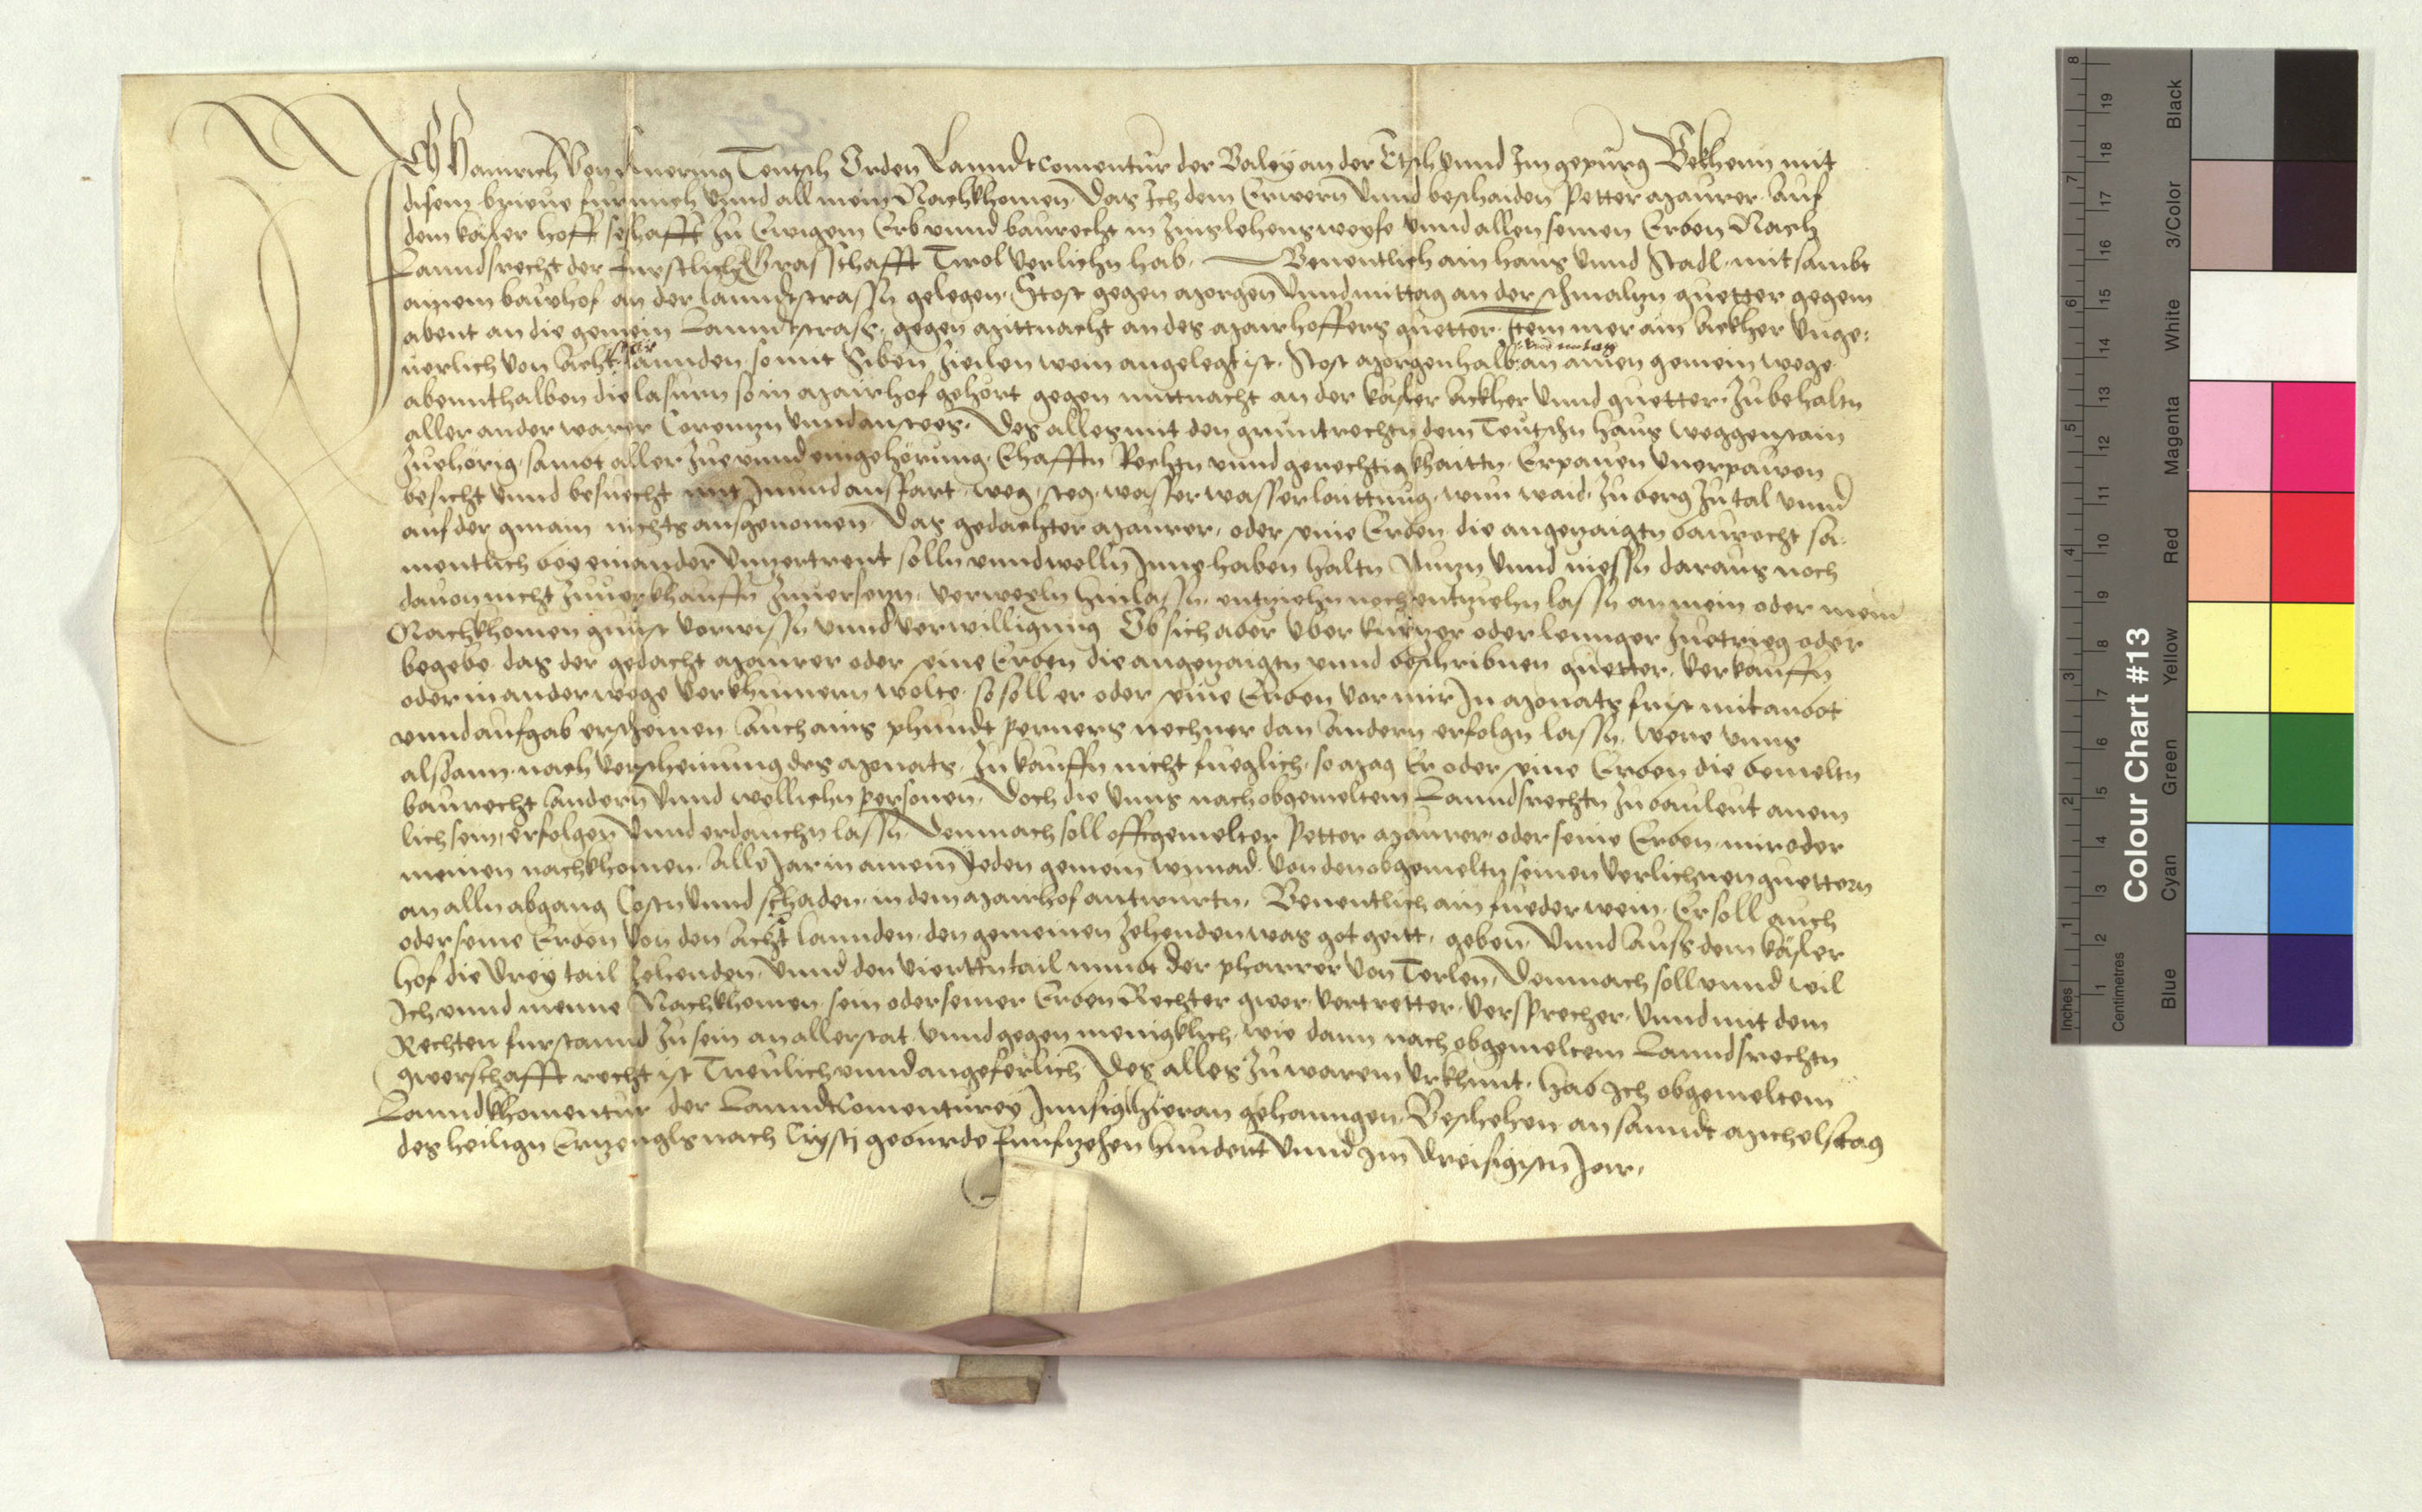 Ich Hainrich Von Knering Teutsch Orden Lanndtcomentur der Baley an der Etsch vnnd Im gepurg Bekhenn mit
disem brieue fur mich vnnd all mein Nachkhomen Das Ich dem Erwern vnnd beschaiden Petter Maurer Auf
dem käsler hoff seshafft Zu Ewigem Erb vnnd baurecht in Zinslehensweyse vnnd allen seinen Erben Nach
Lanndsrecht der Furstlich Grafschafft Tirol Verlichn hab. Benentlich ain haus vnnd Stadl mit sambt
ainem bawhof an der lanndtstrassn gelegen Stost gegen Morgen vnnd mittag an der schmaltzn guetter gegem
abent an die gemein Lanndtstrass, gegen Mittnacht an des Mairhoffers guetter. Item mer ain Ackher Vnge:
uerlich Von Acht launden so mit Siben Zeilen wein angelegt ist. Stost Morgenhalb an ainen gemein wege
abennthalben die lasurn so in Mairhof gehort gegen mittnacht an der käsler Ackher vnnd guetter. Zu behaltn
aller ander warer Coremzn vnnd anstoes. Des alles mit den gruntrechtn dem Teutschn haus Weggenstain
Zuehörig, sambt aller Zue vnnd eingehörung, Ehafftn Rechtn vnnd gerechtigkhaittn. Erpauen vnerpawen
besicht vnnd besuecht mit In vnnd ausfart, weg, steg, wasser wasserlaittung, wun waid, Zu berg Zu tal vnnd
auf der gmain nichts ausgenomen. Das gedachter Maurer, oder seine Erben die angezaigtn baurecht sa:
mentlich bey einander Vnzertrent solln vnnd welln Inne haben haltn Nutzn vnnd niessn daraus noch
dauon nicht Zuuerkhauffn Zuuersetzn, verwexln hinlassn, entziehn noch entziehn lassn an mein oder mein
Nachkhomen gunst vorwissn vnnd verwilligung Ob sich aber Vber kurtzer oder lennger Zuetrieg oder
begebe das der gedacht Maurer oder seine Erben die angezaigtn vnnd beschribnen guetter, Verkauffn
oder in ander wege Verkhumern wolte so soll er oder seine Erben Vor mir In Monats frist mit anbot
vnnd aufgab erscheinen Auch ains phundt perners nechner dan Andern erfolgn lassn. Were Vnns
alsdann nach Verscheinung des Monats, Zu kauffn nicht fueglich, so Mag Er oder seine Erben die bemeltn
baurecht Andern vnnd wellichn personen, Doch die Vnns nach obgemeltem Lanndsrechtn Zu bauleut anem
lich sein, erfolgen vnnd erdauchn lassn. Demnach soll offtgemelter Petter Maurer oder seine Erben mir oder
meinen nachkhomen. Alle Jar in ainem Yeden gemein wymad Von den obgemeltn seinen Verlichnen guettern
an alln abgang Costn vnnd schaden, in dem Mairhof antwurtn. Benentlich ain fueder wein. Er soll auch
oder seine Erben Von den Acht launden, den gemeinen Zehenden was got geitt, geben vnnd Auss dem käsler
hof die drey tail Zehenden, vnnd den Vierttn tail nimbt der pharrer Von Terlen, Demnach soll vnnd wil
Ich vnnd meine Nachkhomen sein oder seiner Erben Rechter gwer, Vertretter, Versprecher, vnnd mit dem
Rechten furstannd Zu sein an aller stat vnnd gegen menigklich, wie dann nach obgemeltem Lanndsrechtn
gwerschafft recht ist Treulich vnnd angeferlich. Des alles Zu warem Vrkhunt. Hab Ich obgemeltem
Lanndkhomentur der Lanndtcomenturey Innsigl hieran gehanngen. Beschehen an sanndt Michelstag
des heilign Ertzengls nach Cristj geburde Funfzehen hundert vnnd Im Dreisigistn Jar.
Colour Chart #13
Blue Cyan Green Yellow Red Magenta White 3/Color Black
Inches 1 2 3 4 5 6 7 8
Centimetres 1 2 3 4 5 6 7 8 9 10 11 12 13 14 15 16 17 18 19